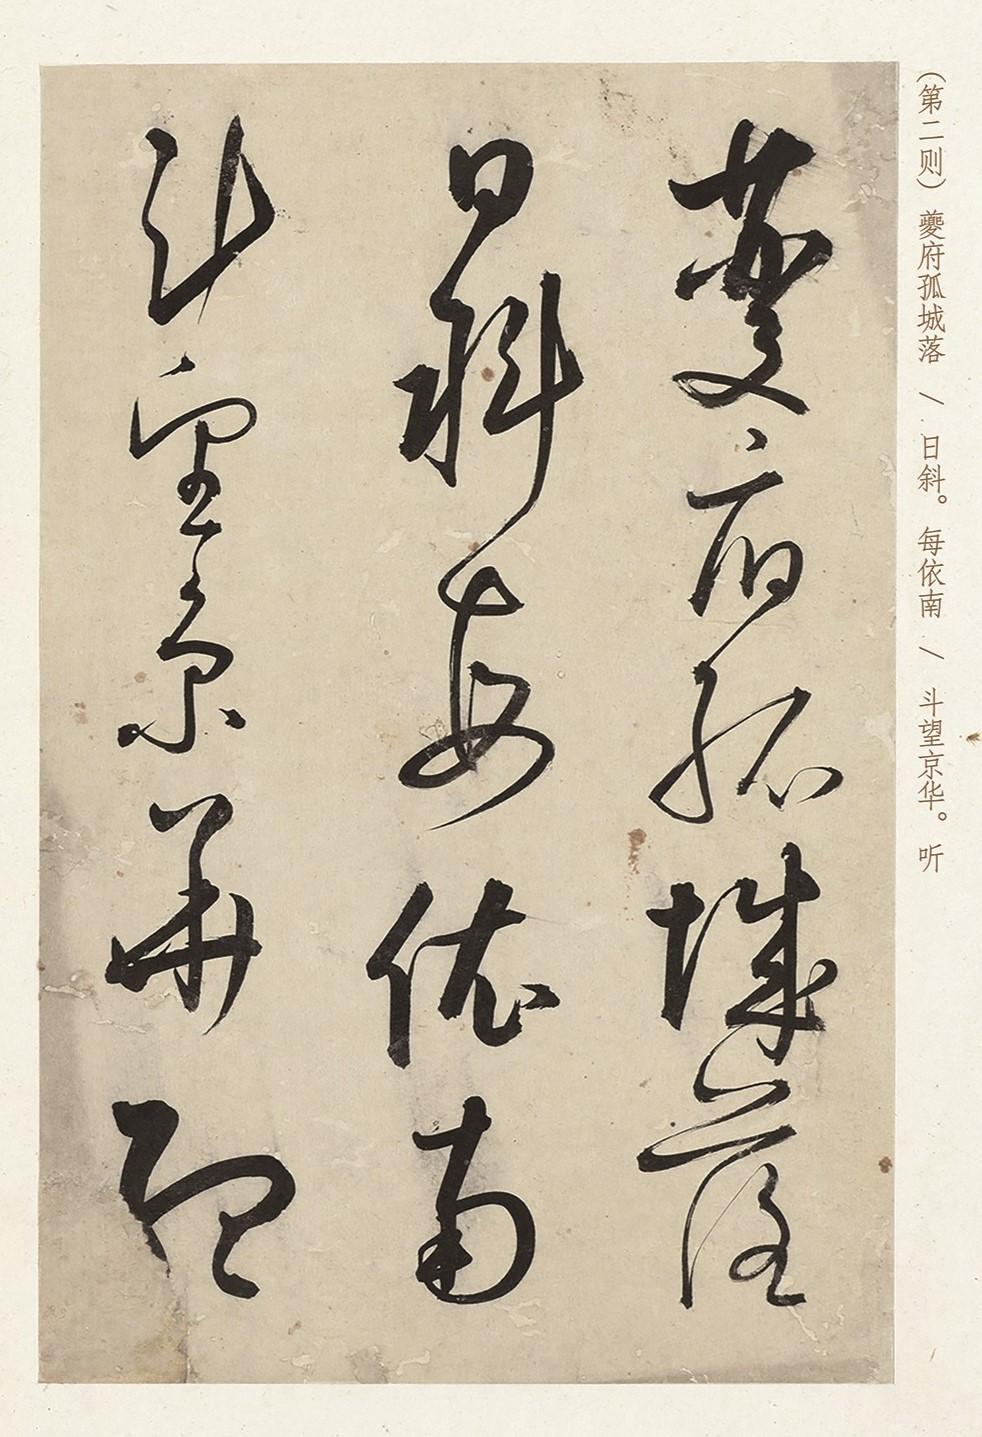 (第二则) 夔府孤城落 / 日斜。每依南 / 斗望京华。听
夔府孤城落
日斜每依南
斗望京華聽